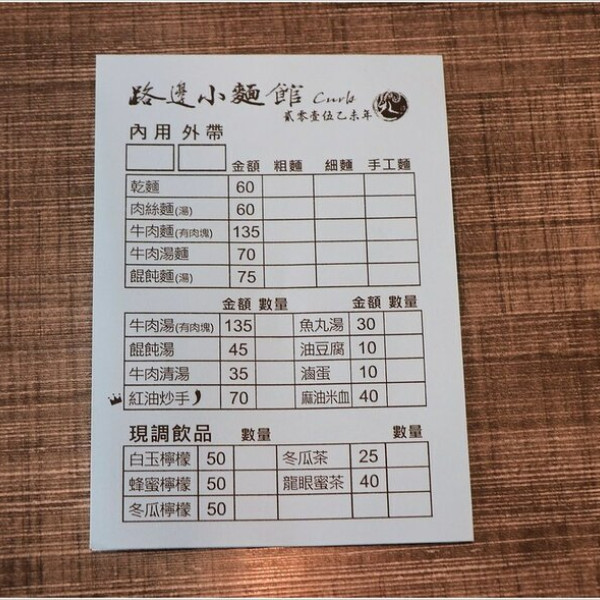 路邊小麵館 Curb
貳零壹伍乙未年
內用 外帶
金額 粗麵 細麵 手工麵
乾麵 60
肉絲麵(湯) 60
牛肉麵(有肉塊) 135
牛肉湯麵 70
餛飩麵(湯) 75
金額 數量 金額 數量
牛肉湯(有肉塊) 135 魚丸湯 30
餛飩湯 45 油豆腐 10
牛肉清湯 35 滷蛋 10
紅油炒手 70 麻油米血 40
現調飲品 數量 數量
白玉檸檬 50 冬瓜茶 25
蜂蜜檸檬 50 龍眼蜜茶 40
冬瓜檸檬 50